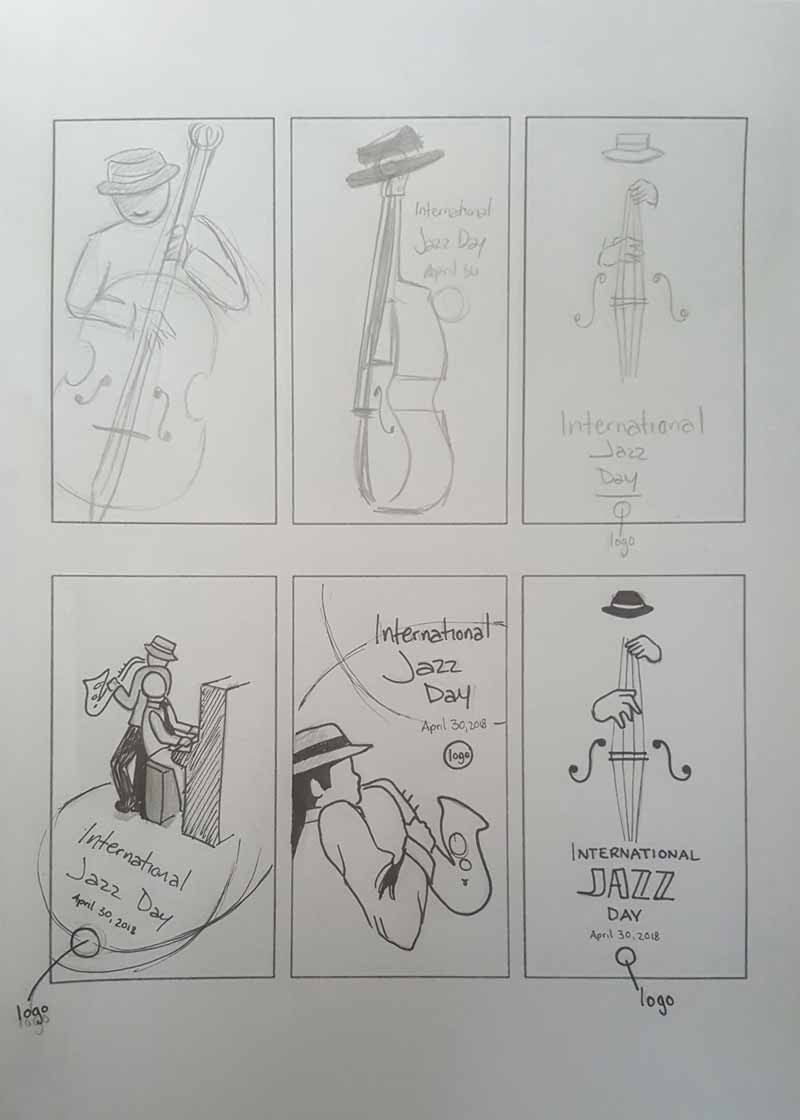 International
Jazz Day
April 30
International
Jazz
Day
logo
International
Jazz Day
April 30, 2018
logo
International
Jazz
Day
April 30, 2018
logo
INTERNATIONAL
JAZZ
DAY
April 30, 2018
logo